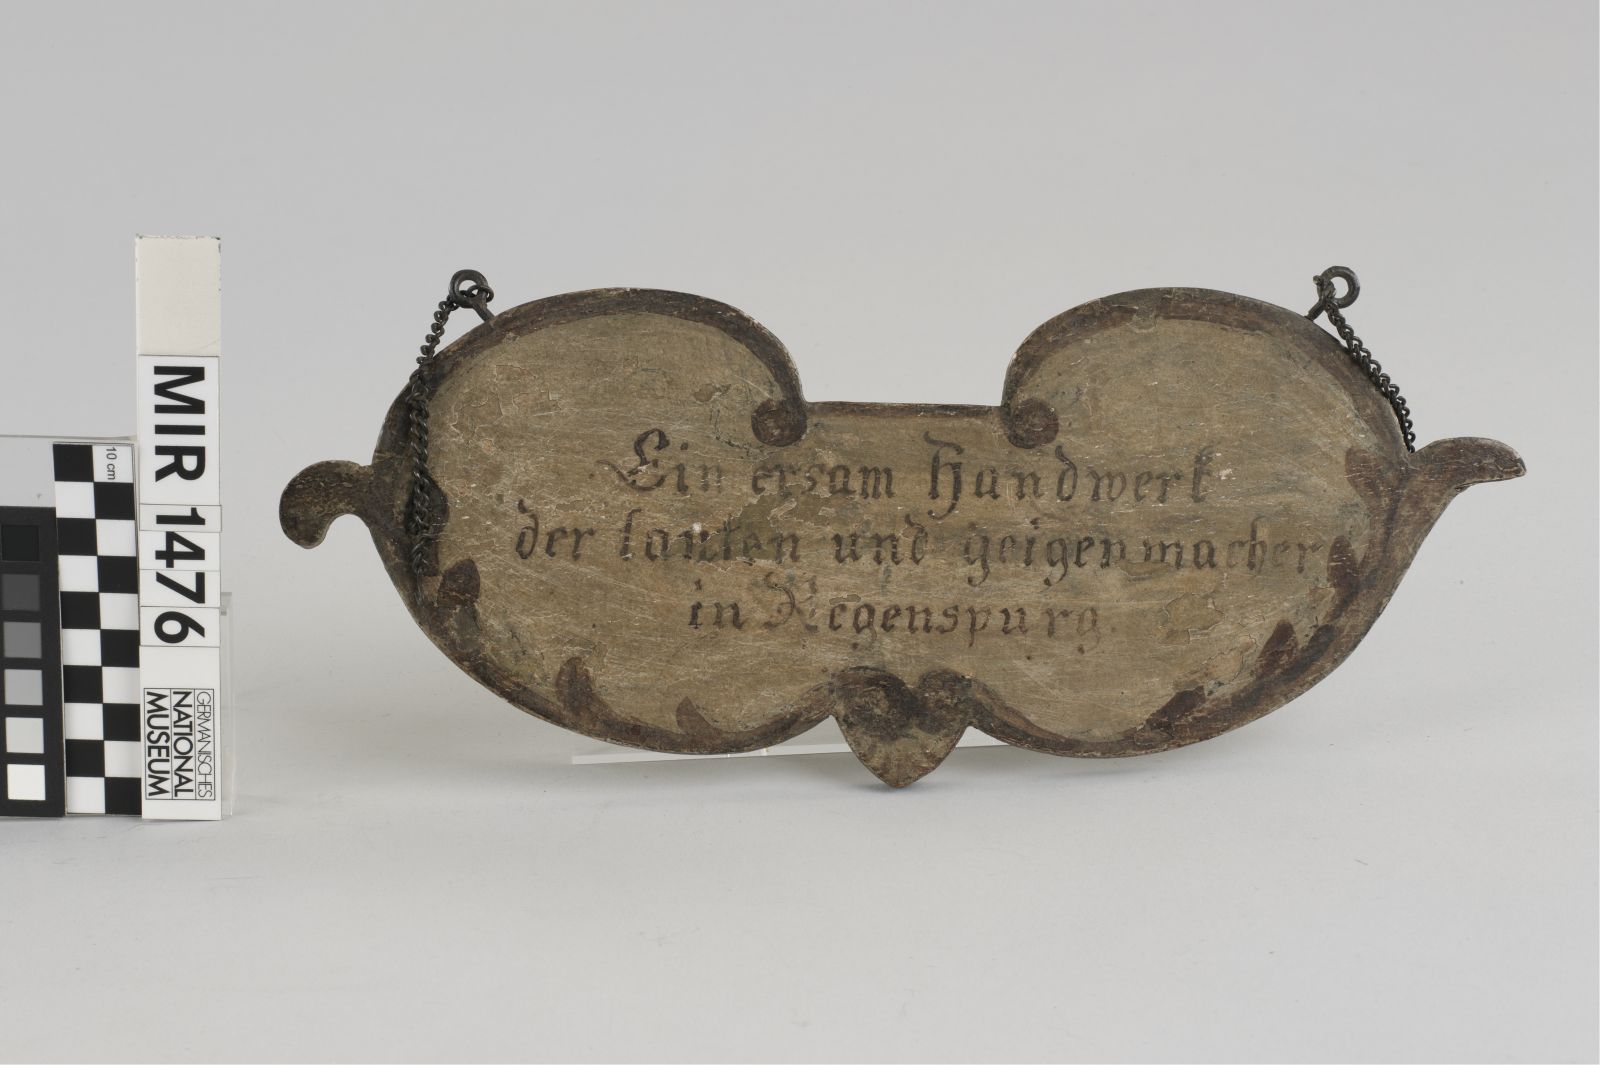 Ein ersam Handwerk
der lauten und geigenmacher
in Regenspurg.
MIR 1476
GERMANISCHES
NATIONAL
MUSEUM
10 cm